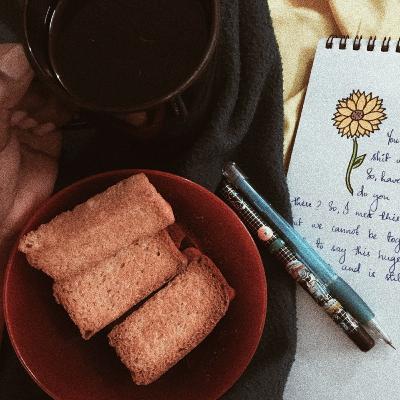 You
shit
So, have
do you
there? So, I met this
but we cannot be tog
to say this huge
and is stil